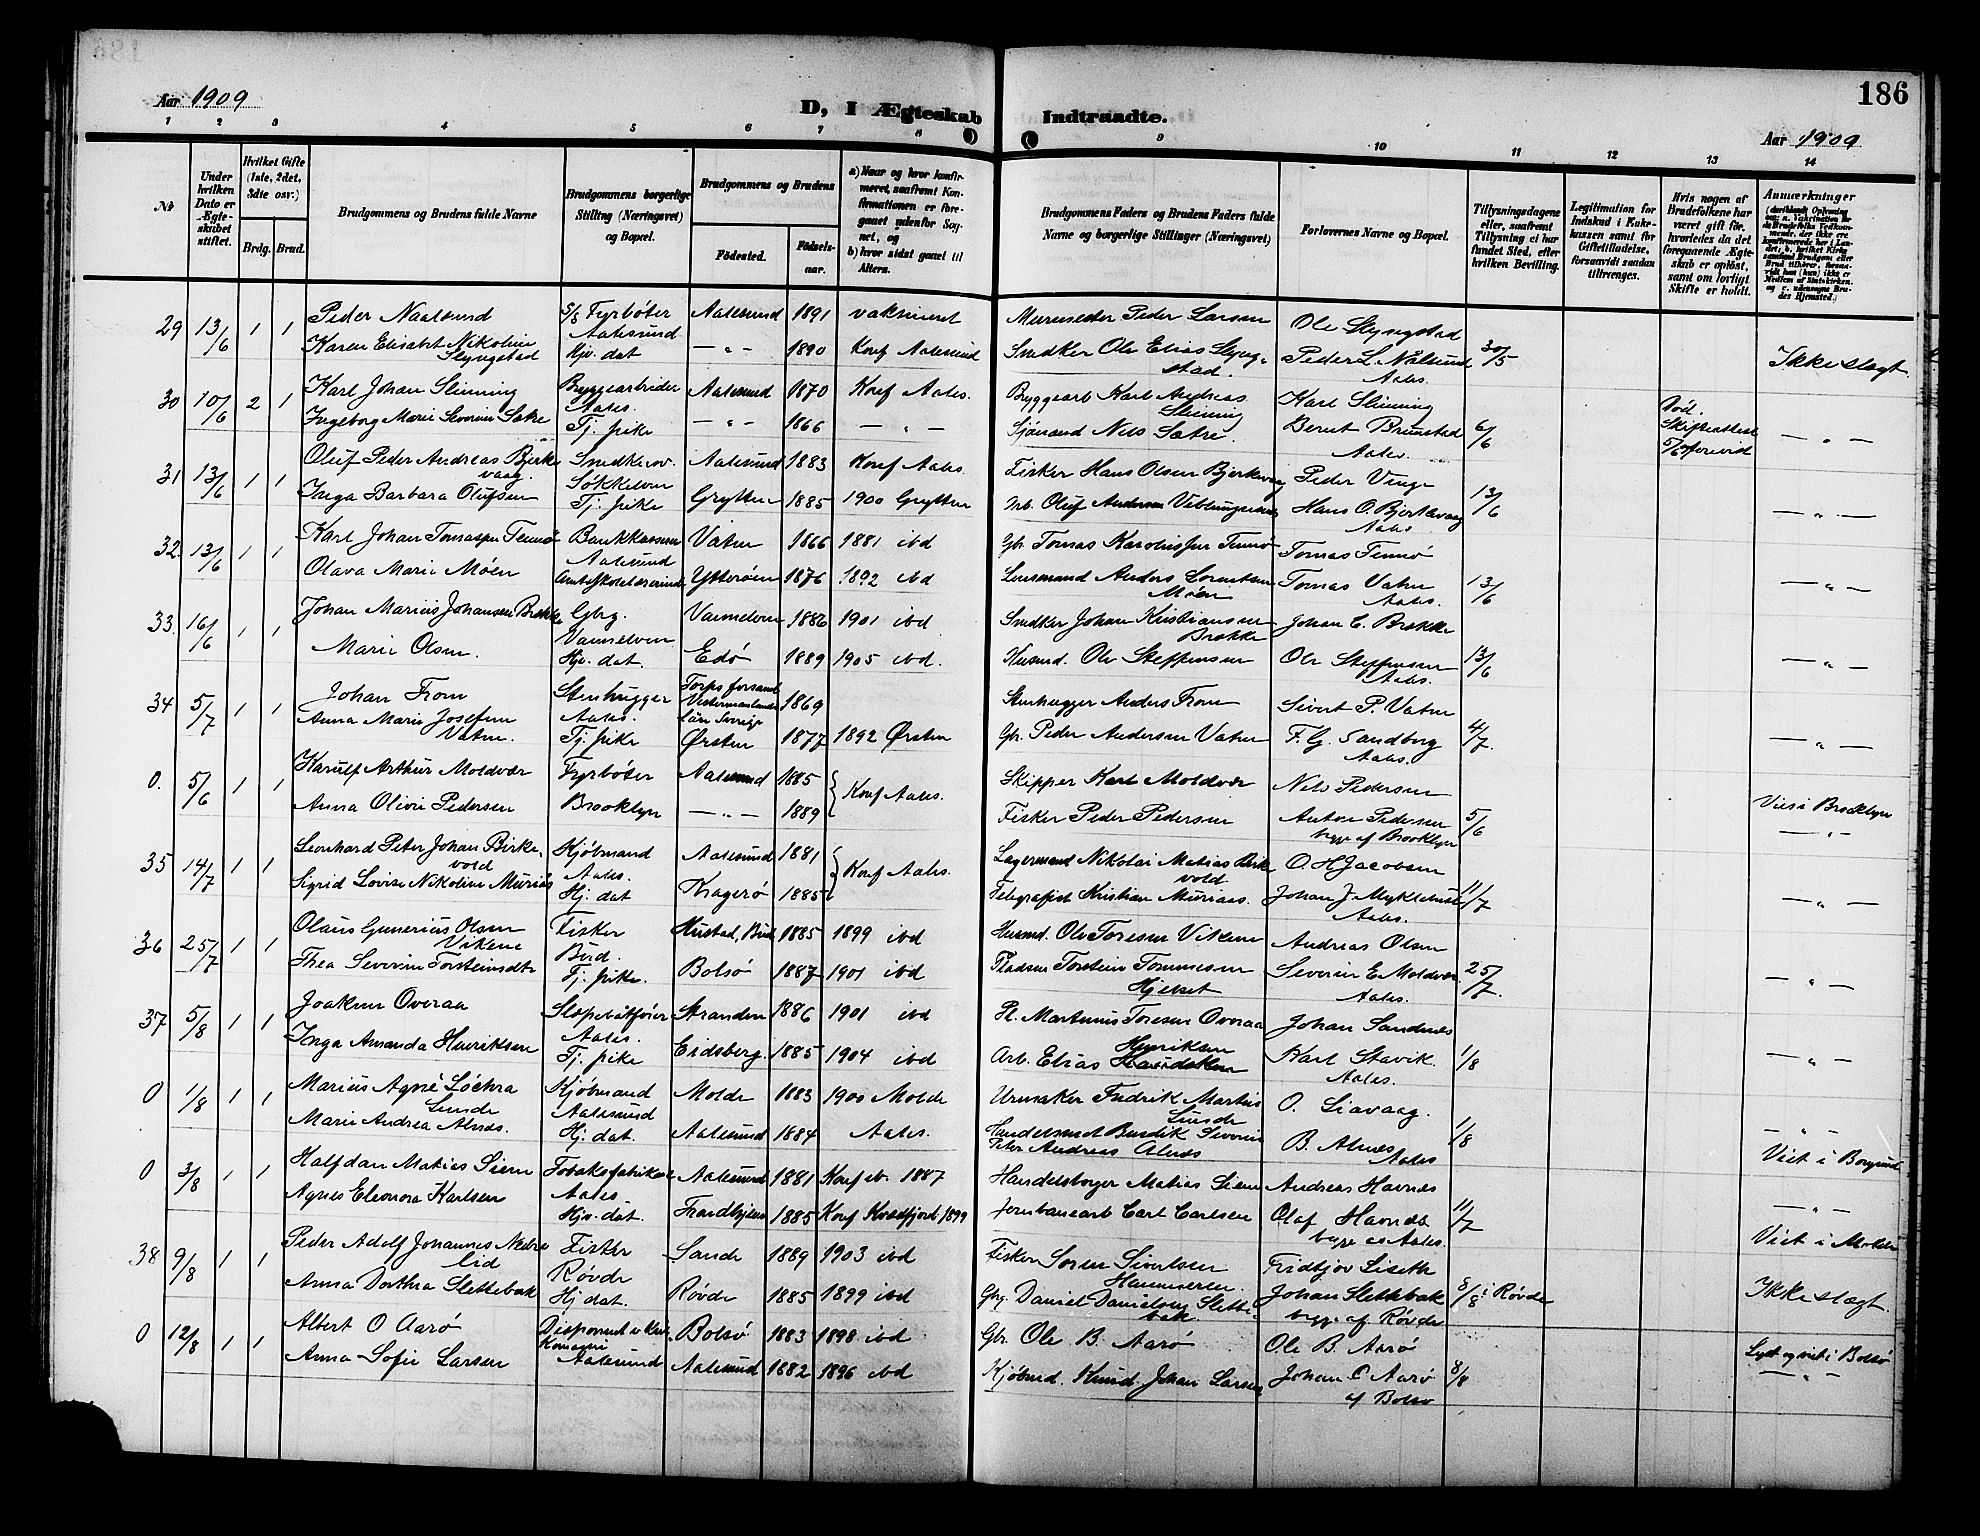 186
Aar 1909
D, I Ægteskab Indtraadte.
Aar 1909
1 2 3 4 5 6 7 8 9 10 11 12 13 14
№
Under hvilken Dato er Ægteskabet stiftet.
Hvilket Gifte (1ste, 2det, 3die osv.)
Brdg. Brud.
Brudgommens og Brudens fulde Navne
Brudgommens borgerlige Stilling (Næringsvei) og Bopæl.
Brudgommens og Brudens
Fødested. Fødselsaar.
a) Naar og hvor konfirmeret, saafremt Konfirmationen er foregaaet udenfor Sognet, og
b) hvor sidst gaaet til Alters.
Brudgommens Faders og Brudens Faders fulde Navne og borgerlige Stillinger (Næringsvei)
Forlovernes Navne og Bopæl.
Tillysningsdagene eller, saafremt Tillysning ei har fundet Sted, efter hvilken Bevilling.
Legitimation for Indskud i Enkekassen samt for Giftetilladelse, forsaavidt saadan tiltrænges.
Hvis nogen af Brudefolkene har været gift før, hvorledes da det foregaaende Ægteskab er opløst, samt om lovligt Skifte er holdt.
Anmærkninger
29 13/6 1 1 Peder Naalsund S/S Fyrbøter Aalesund 1891 vaksineret Murmester Peder Larsen Ole Slyngstad
Aalesund
Karen Elisabet Nikoline Slyngstad Hjv. dat — " — 1890 Konf Aalesund Snedker Ole Elias Slyngstad. Peder L. Nålsund Aales. 30/5 Ikke slægt.
30 10/6 2 1 Karl Johan Slinning Bryggearbeider Aales. Aalesund 1870 Konf Aales. Bryggearb Karl Andreas Slinning Karl Slinning Død.
Ingeborg Marie Severine Sætre Tj. pike — " — 1866 — " — Sjømand Nils Sætre. Bernt Brunstad Aales. 6/6 Skifteattest 5/6 forevist — " —
31 13/6 1 1 Oluf Peder Andreas Bjerkevaag. Snedkersv. Søkkelven Aalesund 1883 Konf Aales. Fisker Hans Olsen Bjerkevaag Peder Vinge
Inga Barbara Olufsen Tj. pike Grytten 1885 1900 Grytten Arb. Oluf Andersen Veblungsnes Hans O. Bjerkevaag Aales 13/6 — " —
32 13/6 1 1 Karl Johan Tomassen Tennø Bankkasserer Aalesund Vatne 1866 1881 ibd Gbr. Tomas Karolussen Tennø Tomas Tennø
Olava Marie Möen Amtsskolelærerinde Ytterøen 1876 1892 ibd Lensmand Anders Lorentsen Möen Tomas Vatne Aales. 13/6 — " —
33. 16/6 1 1 Johan Marius Johansen Brekke Gbrg. Vannelven Vannelven 1886 1901 ibd Snedker Johan Kristiansen Brekke Johan C. Brekke
Marie Olsen. Hjv. dat. Edø 1889 1905 ibd. Husmd. Ole Steffensen Ole Steffensen Aales. 13/6 — " —
34 5/7 1 1 Johan From Stenhugger Aales. Torps forsaml Vestermanlands län Sverige 1869 Stenhugger Anders From Sivert P. Vatne
Anna Marie Josefine Vatne. Tj. pike Ørsten 1877 1892 Ørsten Gbr. Peder Andersen Vatne F. G. Sandborg Aales. 4/7. — " —
0. 5/6 1 1 Karulf Arthur Moldvær Fyrbøter Aalesund 1885 Konf Aales. Skipper Karl Moldvær Nils Pedersen
Anna Olivie Pedersen Brooklyn — " — 1889 Fisker Peder Pedersen Anton Pedersen begge af Brooklyn 5/6 Viet i Brooklyn — " —
35 14/7 1 1 Leonhard Peter Johan Birkevold Kjøbmand Aales. Aalesund 1881 Konf Aales. Lagermand Nikolai Matias Birkevold O. H. Jacobsen
Sigrid Lovise Nikoline Muriås Hj. dat Kragerø 1885 Telegrafist Kristian Muriaas. Johan J. Myklebust Aales. 11/7 — " —
36 25/7 1 1 Olaus Gunerius Olsen Vikene Fisker Bud. Hustad, Bud 1885 1899 ibd Husmd. Ole Toresen Vikene Andreas Olsen
Thea Severine Torsteinsdtr Tj. pike. Bolsø 1887 1901 ibd Pladsm Torstein Tommesen Hjelset Severin E. Moldvær Aales. 25/7. — " —
37 5/8 1 1 Joakim Overaa Slæpebåtfører Aales. Stranden 1886 1901 ibd Pl. Martinus Toresen Overaa Johan Sandnes
Inga Amanda Henriksen Tj. pike Eidsberg. 1885 1904 ibd Arb. Elias Henriksen Karl Stavik. Aales. 1/8 — " —
0 1/8 1 1 Marius Agné Lochra Lunde Kjøbmand Aalesund Molde 1883 1900 Molde Urmaker Fredrik Martin Lunde O. Liavaag.
Marie Andrea Alnæs. Hj. dat. Aalesund 1884 Aales. Handelsmd Bendik Severin Peter Andreas Alnæs B. Alnæs Aales 1/8 — " — Viet i Borgund
0 3/8 1 1 Halfdan Matias Siem Tobaksfabrikant Aales Aalesund 1881 Konf ib. 1887 Handelsborger Matias Siem Andreas Havnes
Agnes Eleonora Karlsen Hjv. dat. 1885 Konf Kvæfjord 1899 Jernbanearb Carl Carlsen Olaf Havnes begge av Aales. 11/7 — " — Viet i Molde
38 9/8 1 1 Peder Adolf Johannes Nedrelid Fisker Røvde Sande 1889 1903 ibd Fisker Soren Sivertsen Fridtjov Liseth
Anna Dorthea Slettebak Hj. dat. Røvde 1885 1899 ibd Gbr. Daniel Danielsen Slettebak Johan Slettebak begge af Røvde 8/8 i Røvde Ikke slægt.
0 12/8 1 1 Albert O Aarø Aalesund Bolsø 1883 1898 ibd Gbr. Ole B. Aarø Ole B. Aarø
Anna Sofie Larsen Aalesund 1882 1896 ibd Kjøbmd. Knud Johan Larsen Johan O Aarø af Bolsø 8/8 Lyst og viet i Bolsø — " —